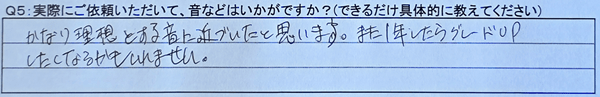 Q5：実際にご依頼いただいて、音などはいかがですか？（できるだけ具体的に教えてください）
かなり理想とする音に近づいたと思います。また1年したらグレードUP
したくなるかもしれません。